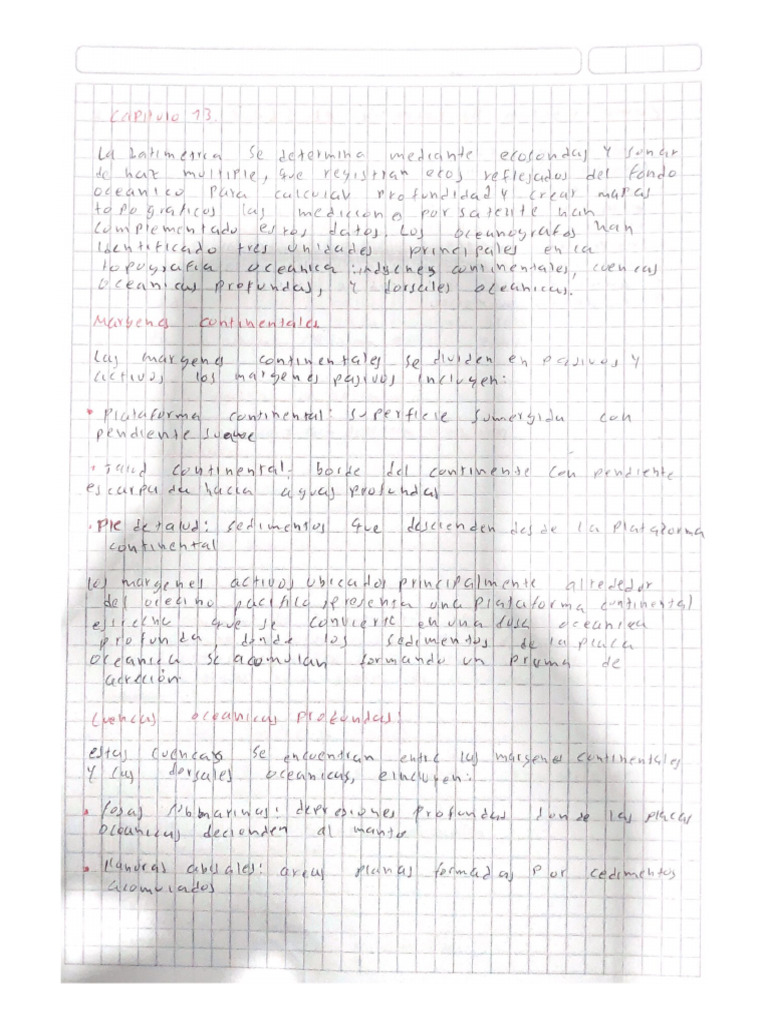 Capitulo 13.
La batimetria se determina mediante ecosondas y sonar
de haz multiple, que registran ecos reflejados del fondo
oceanico para calcular profundidad y crear mapas
topograficos las medicione por satelite han
complementado estos datos. Los oceanografos han
identificado tres unidades principales en la
topografia oceanica: continentales, cuencas
oceanicas profundas, y dorsales oceanicas.
Margenes continentales
Las margenes continentales se dividen en pasivos y
activos los margenes pasivos incluyen:
• Plataforma continental: superficie sumergida con
pendiente suave
• Talud continental: borde del continente con pendiente
escarpada hacia aguas profundas
• Pie de talud: sedimentos que descienden desde la plataforma
continental
Los margenes activos ubicados principalmente alrededor
del oceano pacifico presenta una plataforma continental
estrecha que se convierte en una fosa oceanica
profunda, donde los sedimentos de la placa
oceanica se acomulan formando un prisma de
acreción.
Cuencas oceanicas profundas:
estas cuencas se encuentran entre las margenes continentales
y las dorsales oceanicas, e incluyen:
• fosas submarinas: depresiones profundas donde las placas
oceanicas decienden al manto
• llanuras abisales: areas planas formadas por cedimentos
acomulados